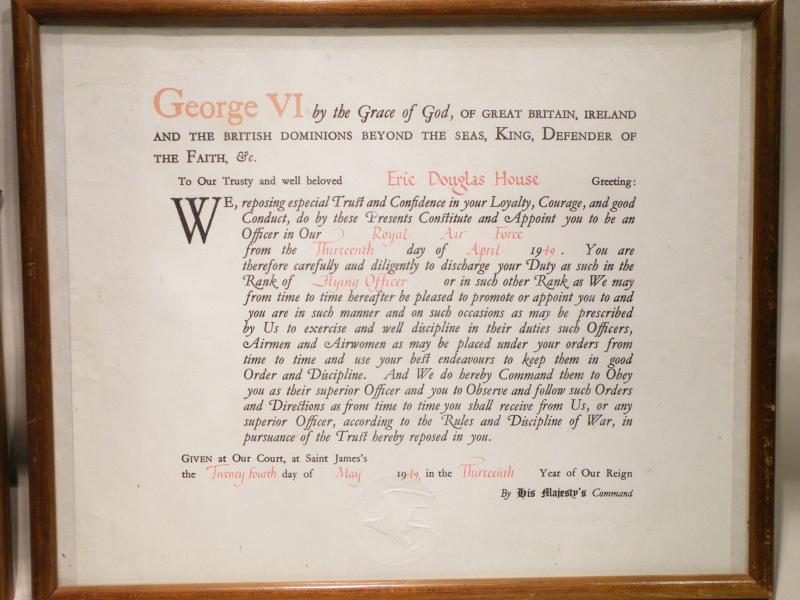 George VI by the Grace of God, OF GREAT BRITAIN, IRELAND
AND THE BRITISH DOMINIONS BEYOND THE SEAS, KING, DEFENDER OF
THE FAITH, &c.
To Our Trusty and well beloved Eric Douglas House Greeting:
WE, reposing especial Trust and Confidence in your Loyalty, Courage, and good
Conduct, do by these Presents Constitute and Appoint you to be an
Officer in Our Royal Air Force
from the Thirteenth day of April 1949. You are
therefore carefully and diligently to discharge your Duty as such in the
Rank of Flying Officer or in such other Rank as We may
from time to time hereafter be pleased to promote or appoint you to and
you are in such manner and on such occasions as may be prescribed
by Us to exercise and well discipline in their duties such Officers,
Airmen and Airwomen as may be placed under your orders from
time to time and use your best endeavours to keep them in good
Order and Discipline. And We do hereby Command them to Obey
you as their superior Officer and you to Observe and follow such Orders
and Directions as from time to time you shall receive from Us, or any
superior Officer, according to the Rules and Discipline of War, in
pursuance of the Trust hereby reposed in you.
GIVEN at Our Court, at Saint James's
the Twenty fourth day of May 1949, in the Thirteenth Year of Our Reign
By His Majesty's Command